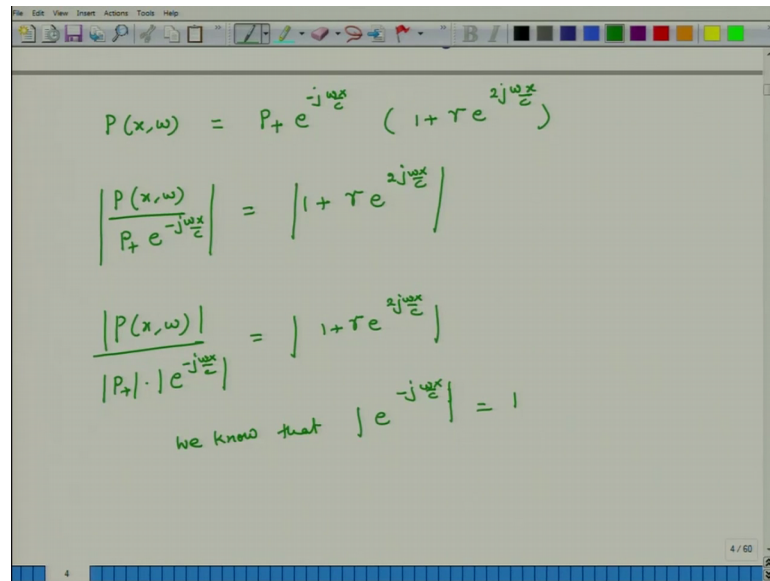 File Edit View Insert Actions Tools Help
B I
P(x,ω) = P₊ e^{-jωx/c} (1 + r e^{2jωx/c})
|P(x,ω) / P₊ e^{-jωx/c}| = |1 + r e^{2jωx/c}|
|P(x,ω)| / |P₊|·|e^{-jωx/c}| = |1 + r e^{2jωx/c}|
we know that |e^{-jωx/c}| = 1
4 / 60
4